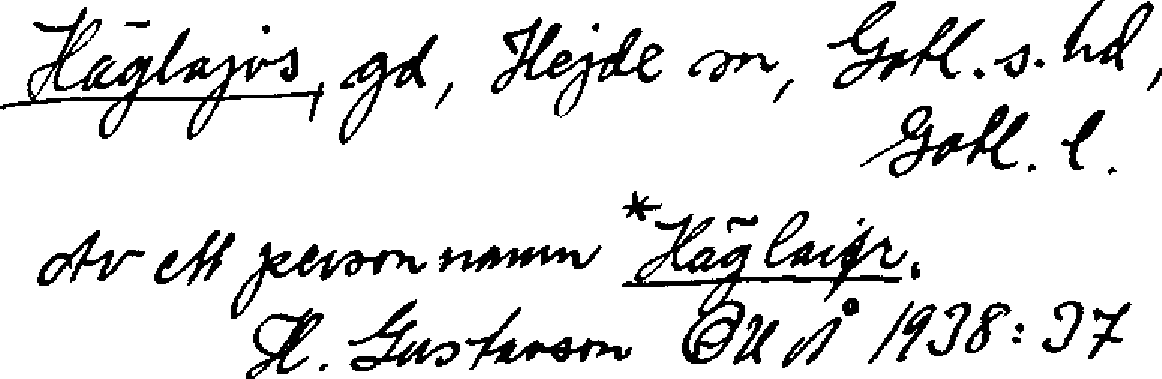 Häglajvs, gd, Hejde sn, Gotl. s. hd,
Gotl. l.
Av ett personnamn *Häglaifr.
H. Gustavson OUÅ 1938: 37